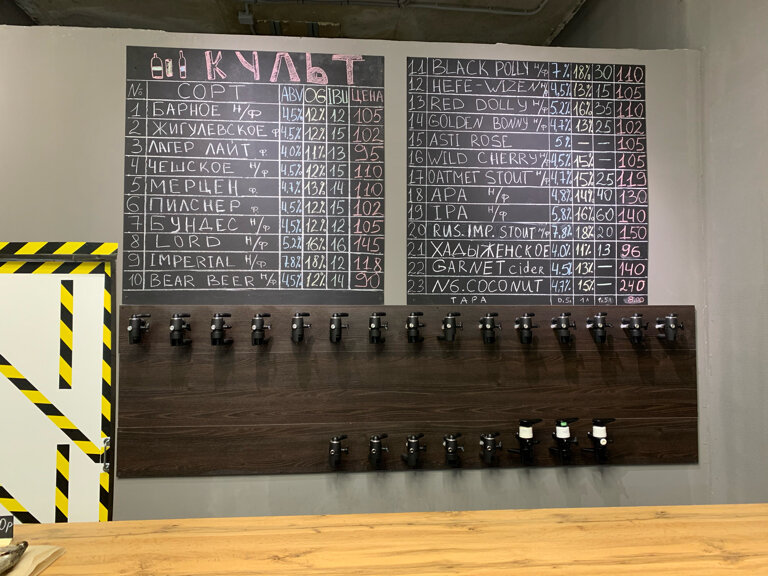 КУЛЬТ
№ СОРТ ABV OG IBU ЦЕНА
1 БАРНОЕ Н/Ф 4,5% 12% 12 105
2 ЖИГУЛЕВСКОЕ Ф 4,5% 12% 15 102
3 ЛАГЕР ЛАЙТ Ф 4.0% 11% 13 95
4 ЧЕШСКОЕ Н/Ф 4,5% 12% 15 110
5 МЕРЦЕН Ф 4.7% 13% 14 110
6 ПИЛСНЕР Ф 4,5% 12% 15 102
7 БУНДЕС Н/Ф 4,5% 12% 12 105
8 LORD Н/Ф 5.2% 16% 16 145
9 IMPERIAL Н/Ф 7.8% 18% 12 118
10 BEAR BEER Н/Ф 4,5% 12% 14 90
11 BLACK POLLY Н/Ф 7% 18% 30 110
12 HEFE-WIZEN Н/Ф 4.5% 13% 15 105
13 RED DOLLY Н/Ф 5.2% 16% 35 110
14 GOLDEN BONNY Н/Ф 4.7% 13% 25 102
15 ASTI ROSE 5% — — 105
16 WILD CHERRY Н/Ф 4.5% 15% — 105
17 OATMET STOUT Н/Ф 4.7% 15% 25 119
18 APA Н/Ф 4,8% 14% 40 130
19 IPA Н/Ф 5.8% 16% 60 140
20 RUS.IMP. STOUT Н/Ф 7.8% 18% 20 150
21 ХАДЫЖЕНСКОЕ 4.0% 11% 13 96
22 GARNET cider 4.5% 13% — 140
23 NG.COCONUT 4.7% 15% — 240
ТАРА 0.5л 1л 1.5л
0Р